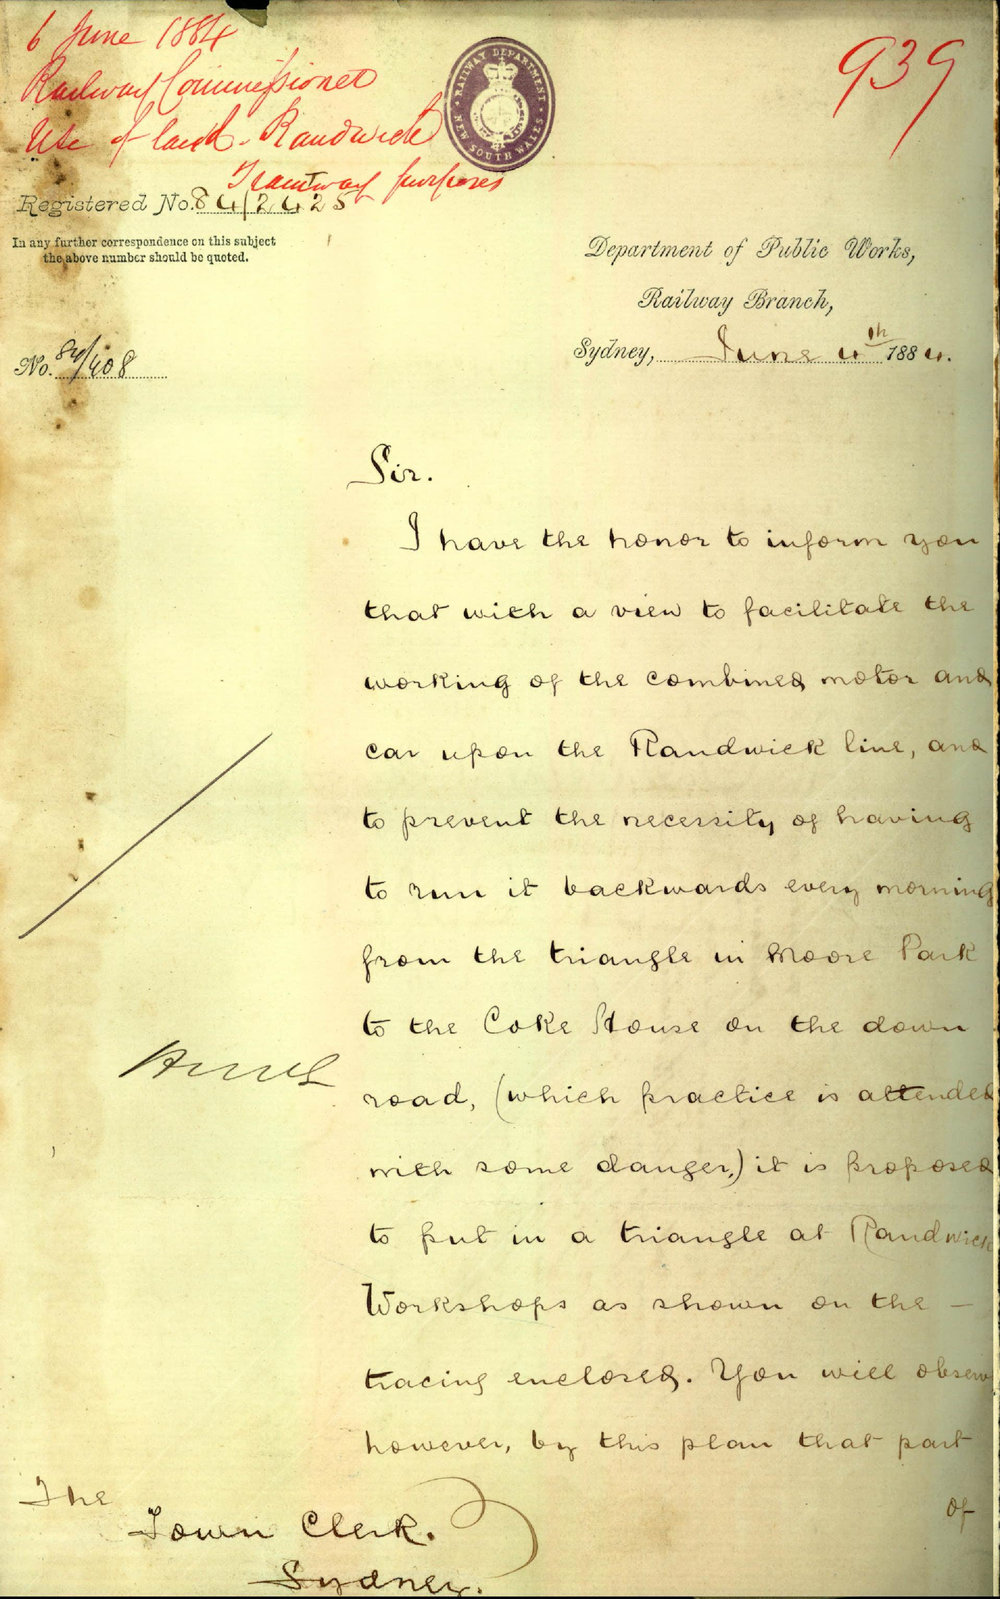 6 June 1884
Railway Commissioner
Use of land - Randwick
Tramway purposes
939
RAILWAY DEPARTMENT
NEW SOUTH WALES
Registered No. 84/2425
In any further correspondence on this subject
the above number should be quoted.
Department of Public Works,
Railway Branch,
Sydney, June 4th 1884.
No. 84/408
Sir.
I have the honor to inform you
that with a view to facilitate the
working of the combined motor and
car upon the Randwick line, and
to prevent the necessity of having
to run it backwards every morning
from the triangle in Moore Park
to the Coke House on the down
road, (which practice is attended
with some danger,) it is proposed
to put in a triangle at Randwick
Workshops as shown on the —
tracing enclosed. You will observe
however, by this plan that part
of
The
Town Clerk.
Sydney.